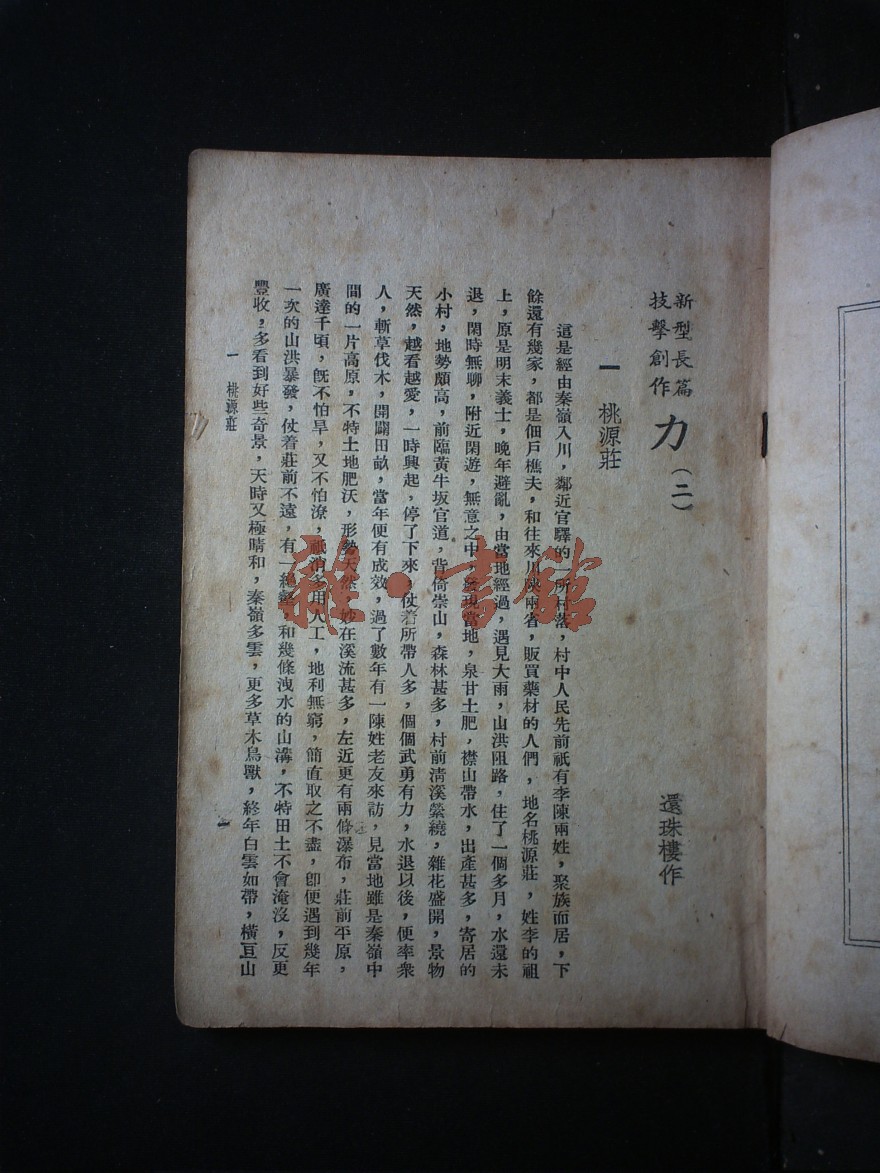 新型長篇
技擊創作
力(二)
還珠樓作
一 桃源莊
這是經由秦嶺入川,鄰近官驛的一所村落,村中人民先前祇有李陳兩姓,聚族而居,下
餘還有幾家,都是佃戶樵夫,和往來川陝兩省,販買藥材的人們,地名桃源莊,姓李的祖
上,原是明末義士,晚年避亂,由當地經過,遇見大雨,山洪阻路,住了一個多月,水還未
退,閑時無聊,附近閑遊,無意之中,發現當地,泉甘土肥,襟山帶水,出產甚多,寄居的
小村,地勢頗高,前臨黃牛坂官道,背倚崇山,森林甚多,村前清溪縈繞,雜花盛開,景物
天然,越看越愛,一時興起,停了下來,仗着所帶人多,個個武勇有力,水退以後,便率衆
人,斬草伐木,開闢田畝,當年便有成效,過了數年有一陳姓老友來訪,見當地雖是秦嶺中
間的一片高原,不特土地肥沃,形勢天然,妙在溪流甚多,左近更有兩條瀑布,莊前平原,
廣達千頃,旣不怕旱,又不怕潦,祇消多用人工,地利無窮,簡直取之不盡,卽便遇到幾年
一次的山洪暴發,仗着莊前不遠,有一絕壑,和幾條洩水的山溝,不特田土不會淹沒,反更
豐收,多看到好些奇景,天時又極晴和,秦嶺多雲,更多草木鳥獸,終年白雲如帶,橫亘山
一 桃源莊
一
雜·書館